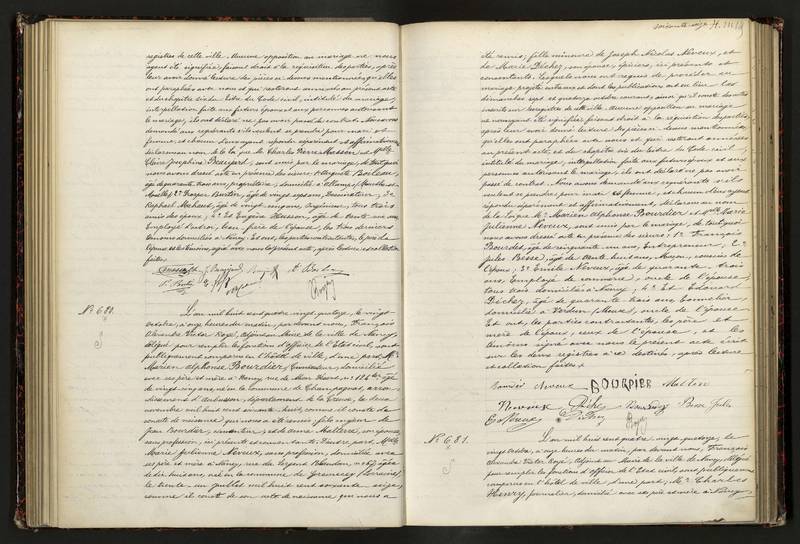 registres de cette ville. Aucune opposition au mariage ne nous
ayant été signifiée, faisant droit à la réquisition des parties, après
leur avoir donné lecture des pièces ci-dessus mentionnées qu'elles
ont paraphées avec nous et qui resteront annexées au présent acte
et du chapitre six du titre du Code civil, intitulé du mariage,
interpellation faite aux futurs époux et aux personnes autorisant
le mariage, ils ont déclaré ne pas avoir passé de contrat. Nous avons
demandé aux requérants s'ils veulent se prendre pour mari et
femme; et chacun d'eux ayant répondu séparément et affirmativement
déclarons au nom de la loi que Mr Charles Pierre Husson et Mlle
Claire Joséphine
sont unis par le mariage, de tout quoi
nous avons dressé acte en présence des sieurs: 1° Auguste
âgé de quarante
ans, propriétaire, domicilié à
2°
âgé de vingt sept ans, Dessinateur; 3°
Raphaël
âgé de vingt-cinq ans, Ingénieur, tous trois
amis des époux; 4° Et Eugène Husson, âgé de trente
ans
Employé
beau frère de l'épouse, les trois derniers
témoins domiciliés à Nancy. Et ont, les parties contractantes, le père de
l'épouse et les témoins, signé avec nous le présent acte, après lecture et collation
faites.
N° 680.
L'an mil huit cent quatre vingt quatorze, le vingt
octobre, à onze heures du matin, par devant nous, François
Alexandre Victor Royé, Adjoint au Maire de la ville de Nancy,
délégué pour remplir les fonctions d'officier de l'Etat civil, sont
publiquement comparus en l'hôtel de ville, d'une part, Mr
Marien Alphonse Bourdier,
domicilié
avec ses père et mère à Nancy, rue de Mon Désert, n°
âgé
de vingt-cinq ans, né en la commune de Champagnat, arron-
dissement d'Aubusson, département de la Creuse, le deux
novembre mil huit cent soixante-huit, comme il conste de
l'acte de naissance qui nous a été remis; fils majeur de
Jean Bourdier,
et de Anne Malterre, son épouse,
sans profession, ici présents et consentants. D'autre part, Mlle
Marie Julienne Neveux, sans profession, domiciliée avec
ses père et mère à Nancy, rue du Sergent Blandan, n° 67, âgée
de dix huit ans, née en la commune de
(Lorraine)
le trente un juillet mil huit cent soixante seize,
comme il conste de son acte de naissance qui nous a
été remis; fille mineure de Joseph Nicolas Neveux, et
de Marie Dichez, son épouse, épiciers, ici présents et
consentants. Lesquels nous ont requis de procéder au
mariage projeté entre eux et dont les publications ont eu lieu les
dimanches sept et quatorze octobre courant, ainsi qu'il conste des actes
inscrits aux registres de cette ville. Aucune opposition au mariage
ne nous ayant été signifiée, faisant droit à la réquisition des parties,
après leur avoir donné lecture des pièces ci-dessus mentionnées,
qu'elles ont paraphées avec nous et qui resteront annexées
au présent acte, et du chapitre six du titre du Code civil,
intitulé du mariage, interpellation faite aux futurs époux et aux
personnes autorisant le mariage, ils ont déclaré ne pas avoir
passé de contrat. Nous avons demandé aux requérants s'ils
veulent se prendre pour mari et femme, et chacun d'eux ayant
répondu séparément et affirmativement, déclarons au nom
de la loi que Mr Marien Alphonse Bourdier et Mlle Marie
Julienne Neveux, sont unis par le mariage, de tout quoi
nous avons dressé acte en présence des sieurs: 1° François
Bourdet, âgé de cinquante un ans, Entrepreneur; 2°
Jules Besse, âgé de trente huit ans, Maçon, cousins de
l'époux; 3° Emile Neveux, âgé de quarante-trois
ans, Employé de commerce, oncle de l'épouse,
tous trois domiciliés à Nancy; 4° Et Edouard
Dichez, âgé de quarante-trois ans, Tonnelier,
domicilié à Verdun (Meuse), oncle de l'épouse.
Et ont, les parties contractantes, les père et
mère de l'époux, ceux de l'épouse, et les
témoins signé avec nous le présent acte écrit
sur les deux registres à ce destinés, après lecture
et collation faites.
Neveux BOURDIER
Neveux Dichez Bourdet Besse Jules
N° 681.
L'an mil huit cent quatre vingt quatorze, le
vingt octobre, à onze heures du matin, par devant nous, François
Alexandre Victor Royé, Adjoint au Maire de la ville de Nancy, délégué
pour remplir les fonctions d'officier de l'Etat civil, sont publiquement
comparus en l'hôtel de ville d'une part, Mr Charles
Henry, journalier, domicilié avec ses père et mère à Nancy,